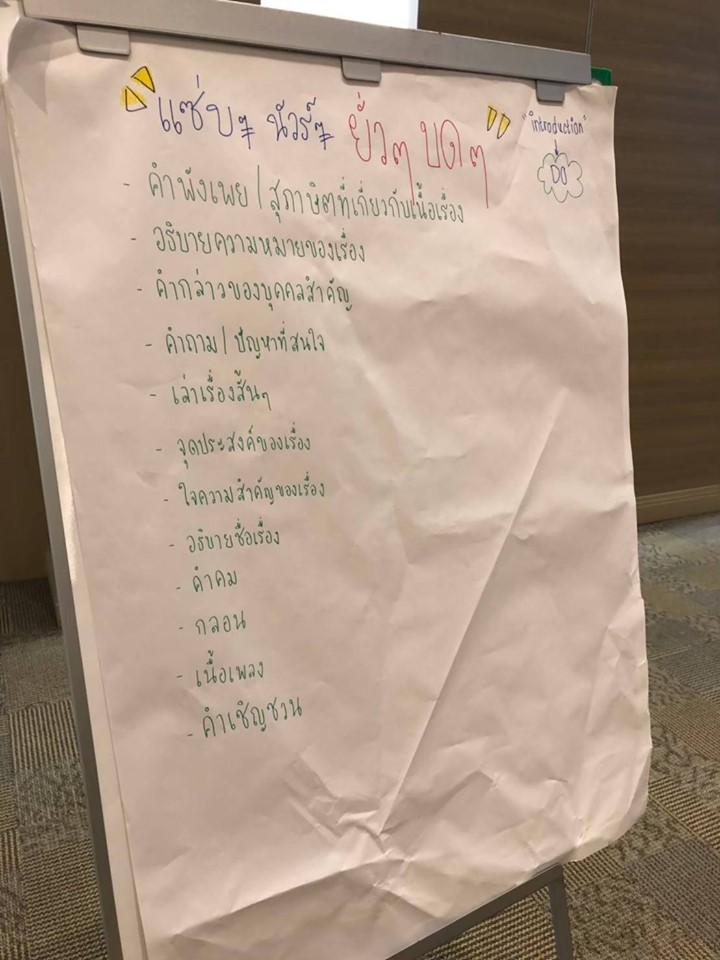 "แซ่บๆ นัวร์ๆ ยั่วๆ บดๆ"
"introduction"
DO
- คำพังเพย / สุภาษิตที่เกี่ยวกับเนื้อเรื่อง
- อธิบายความหมายของเรื่อง
- คำกล่าวของบุคคลสำคัญ
- คำถาม / ปัญหาที่สนใจ
- เล่าเรื่องสั้นๆ
- จุดประสงค์ของเรื่อง
- ใจความสำคัญของเรื่อง
- อธิบายชื่อเรื่อง
- คำคม
- กลอน
- เนื้อเพลง
- คำเชิญชวน